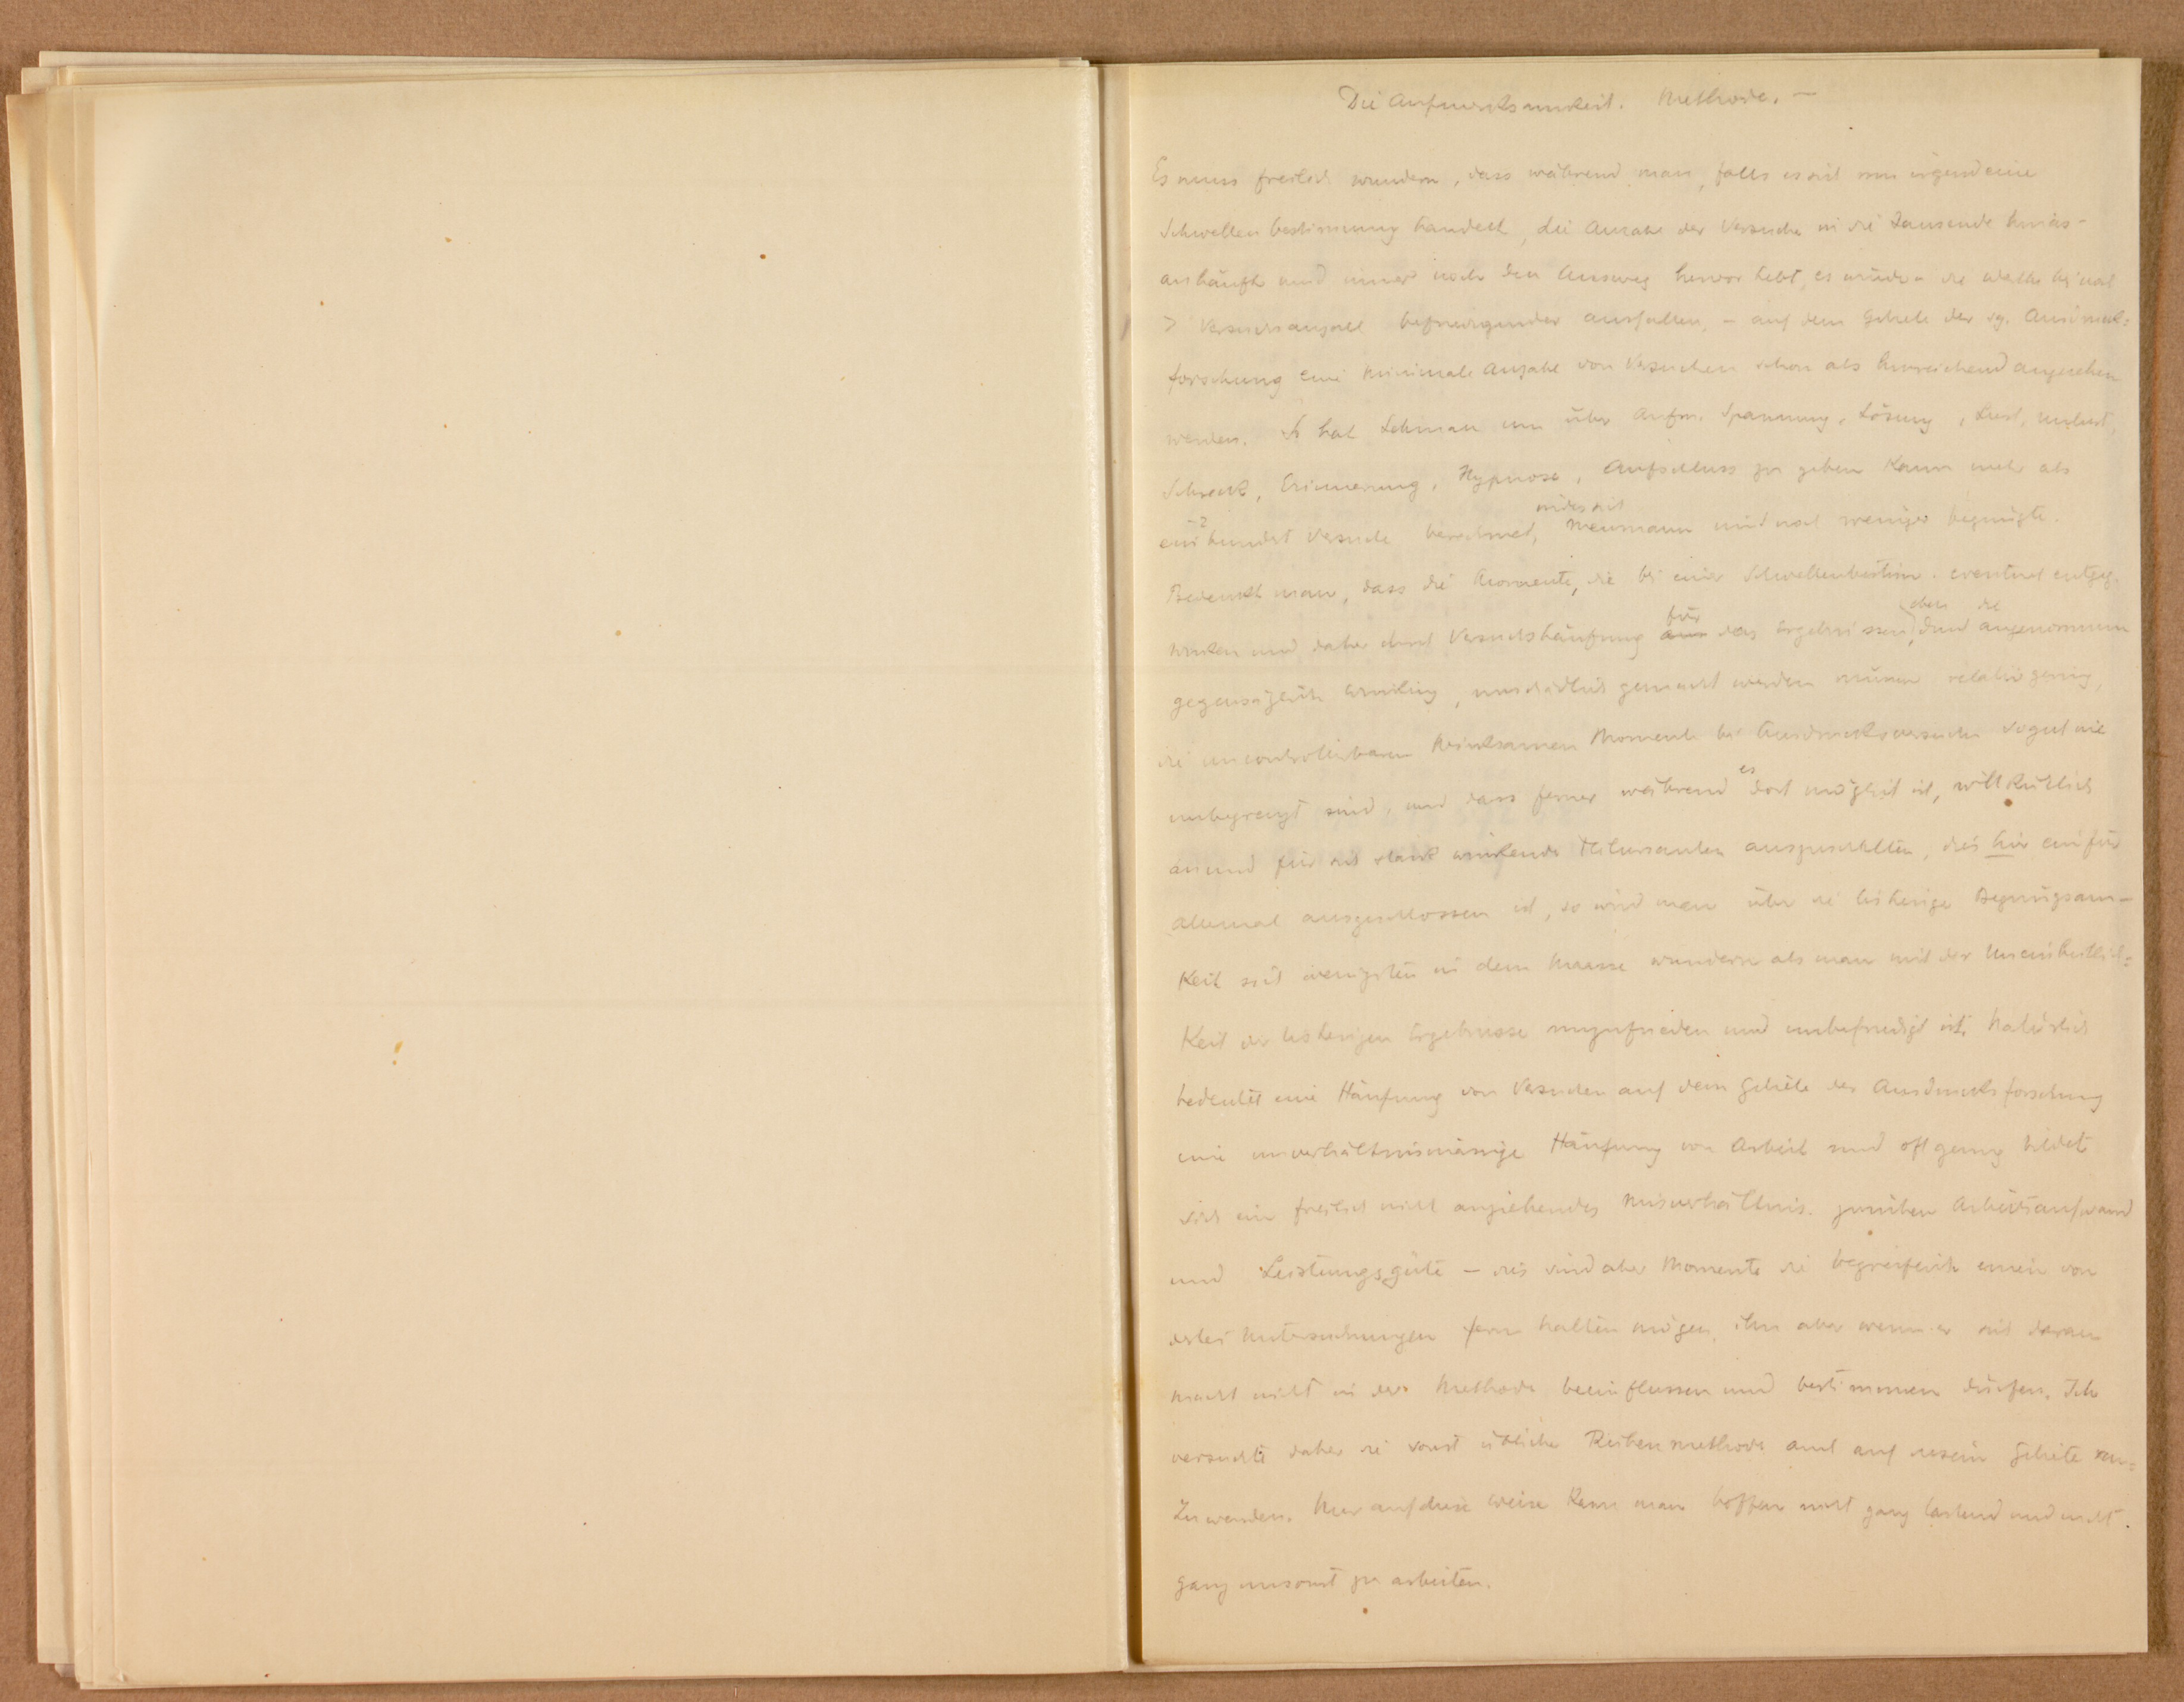 Die Aufmerksamkeit. Methode. —
Es muss freilich wundern, dass während man, falls es sich um irgendeine
Schwellenbestimmung handelt, die Anzahl der Versuche in die Tausende hinaus-
anhäufte und immer noch den Ausweg hervor hebt, es würden die bei noch
> Versuchsanzahl befriedigender ausfallen, – auf dem Gebiete der sg. Ausdruck=
forschung eine minimale Anzahl von Versuchen schon als hinreichend angesehen
werden. So hat Lehman um über Aufm. Spannung, Lösung, Lust, Unlust,
Schreck, Erinnerung, Hypnose, Aufschluss zu geben kaum mehr als
ein hundert Versuche berechnet, Meumann mit noch weniger begnügte.
Bedenkt man, dass die Momente, die bei einer Schwellenbestim. eventuel entgeg.
wirken und daher durch Versuchshäufung für das Ergebnissen, eben die angenommen
gegensätzliche Wirkung, unschädlich gemacht werden müssen relativ gering,
die uncontrolierbaren Momente bei Ausdrucksversuche sogut wie
unbegrenzt sind, und dass ferner während es dort möglich ist, willkürlich
an und für sich stark wirkende auszuschalten, dies hier ein für
allemal ausgeschlossen ist, so wird man über die bisherige Begnügsam-
keit sich wenigsten in dem Maasse wundern als man mit der Uneinheitlich=
keit der bisherigen Ergebnisse unzufrieden und unbefriedigt ist. Natürlich
bedeutet eine Häufung von Versuchen auf dem Gebiete der Ausdrucksforschung
eine unverhältnismässige Häufung von Arbeit und oft genug bildet
sich ein freilich nicht anziehendes Misverhältnis zwischen Arbeitsaufwand
und Leistungsgüte – dies sind aber Momente die begreiflich einen von
derlei Untersuchungen fern halten mögen, ihn aber wenn er sich daran
macht nicht in der Methode beeinflussen und bestimmen dürfen. Ich
versuchte daher die sonst übliche Reihenmethode auch auf diesem Gebiete an=
zuwenden. Nur auf diese Weise kann man hoffen nicht ganz tastend und nicht
ganz umsonst zu arbeiten.